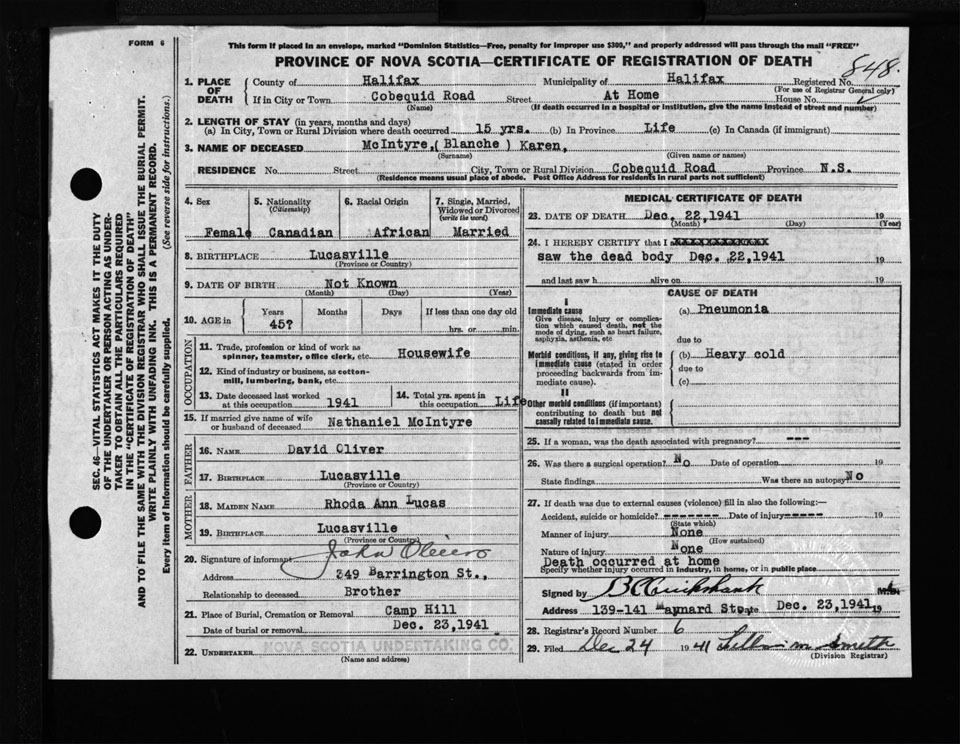 FORM 6
This form if placed in an envelope, marked "Dominion Statistics—Free, penalty for improper use $300," and properly addressed will pass through the mail "FREE"
PROVINCE OF NOVA SCOTIA—CERTIFICATE OF REGISTRATION OF DEATH
848.
1. PLACE OF DEATH
County of Halifax Municipality of Halifax Registered No.
(For use of Registrar General only)
If in City or Town Cobequid Road Street At Home House No.
(Name) (If death occurred in a hospital or institution, give the name instead of street and number)
2. LENGTH OF STAY (in years, months and days)
(a) In City, Town or Rural Division where death occurred 15 yrs. (b) In Province Life (c) In Canada (if immigrant)
3. NAME OF DECEASED McIntyre, (Blanche) Karen,
(Surname) (Given name or names)
RESIDENCE No. Street City, Town or Rural Division Cobequid Road Province N.S.
(Residence means usual place of abode. Post Office Address for residents in rural parts not sufficient)
4. Sex 5. Nationality 6. Racial Origin 7. Single, Married,
(Citizenship) Widowed or Divorced
(write the word)
Female Canadian African Married
8. BIRTHPLACE Lucasville
(Province or Country)
9. DATE OF BIRTH Not Known
(Month) (Day) (Year)
10. AGE in Years Months Days If less than one day old
45? hrs. or min.
OCCUPATION
11. Trade, profession or kind of work as
spinner, teamster, office clerk, etc. Housewife
12. Kind of industry or business, as cotton-
mill, lumbering, bank, etc.
13. Date deceased last worked
at this occupation 1941
14. Total yrs. spent in
this occupation Life
15. If married give name of wife
or husband of deceased Nathaniel McIntyre
FATHER
16. NAME David Oliver
17. BIRTHPLACE Lucasville
(Province or Country)
MOTHER
18. MAIDEN NAME Rhoda Ann Lucas
19. BIRTHPLACE Lucasville
(Province or Country)
20. Signature of informant John Oliver
Address 349 Barrington St.,
Relationship to deceased Brother
21. Place of Burial, Cremation or Removal Camp Hill
Date of burial or removal Dec. 23,1941
22. UNDERTAKER NOVA SCOTIA UNDERTAKING CO.
(Name and address)
MEDICAL CERTIFICATE OF DEATH
23. DATE OF DEATH Dec. 22,1941 19
(Month) (Day) (Year)
24. I HEREBY CERTIFY that I XXXXXXXXXXXXX
saw the dead body Dec. 22,1941 19
and last saw h alive on 19
CAUSE OF DEATH
I
Immediate cause
Give disease, injury or complica-
tion which caused death, not the
mode of dying, such as heart failure,
asphyxia, asthenia, etc
(a) Pneumonia
due to
Morbid conditions, if any, giving rise to
immediate cause (stated in order
proceeding backwards from im-
mediate cause).
(b) Heavy cold
due to
(c)
II
Other morbid conditions (if important)
contributing to death but not
causally related to immediate cause.
25. If a woman, was the death associated with pregnancy? ---
26. Was there a surgical operation? No Date of operation 19
State findings Was there an autopsy No
27. If death was due to external causes (violence) fill in also the following:—
Accident, suicide or homicide? ------- Date of injury ----- 19
(State which)
Manner of injury None
(How sustained)
Nature of injury None
Death occurred at home
Specify whether injury occurred in industry, in home, or in public place
Signed by
Address 139-141 Maynard St. Date Dec. 23,1941 19
28. Registrar's Record Number 6
29. Filed Dec 24 1941
(Division Registrar)
SEC. 46—VITAL STATISTICS ACT MAKES IT THE DUTY
OF THE UNDERTAKER OR PERSON ACTING AS UNDER-
TAKER TO OBTAIN ALL THE PARTICULARS REQUIRED
IN THE "CERTIFICATE OF REGISTRATION OF DEATH"
AND TO FILE THE SAME WITH THE DIVISION REGISTRAR WHO SHALL ISSUE THE BURIAL PERMIT.
WRITE PLAINLY WITH UNFADING INK. THIS IS A PERMANENT RECORD.
Every item of information should be carefully supplied. (See reverse side for instructions.)